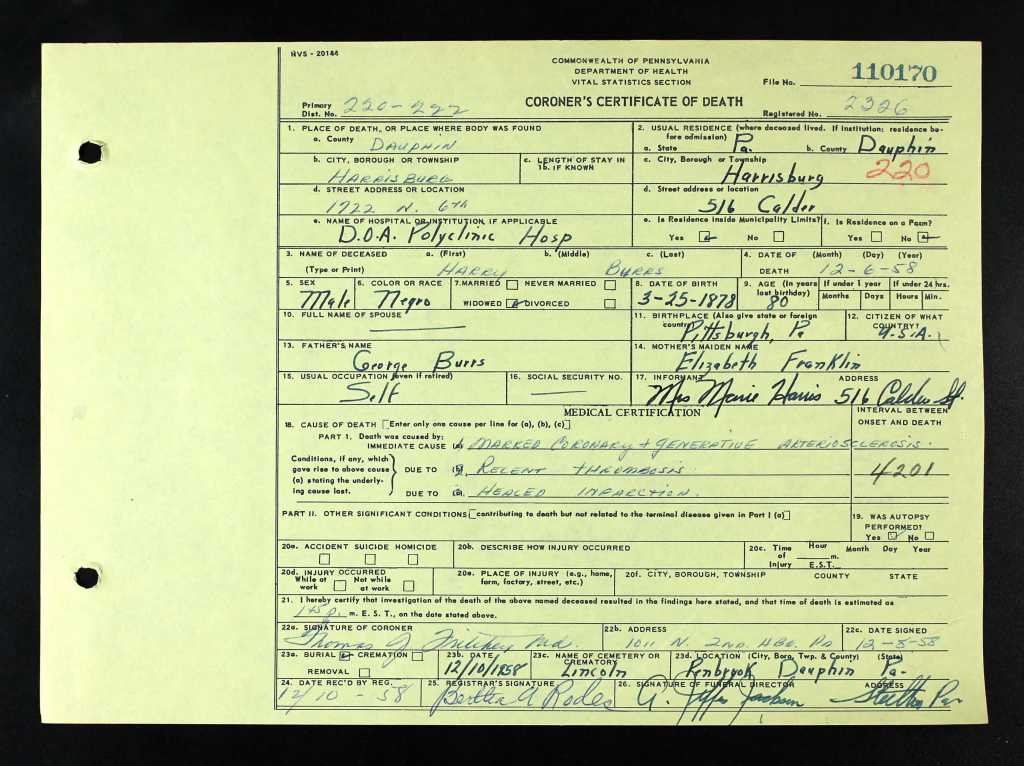 HVS - 20144
COMMONWEALTH OF PENNSYLVANIA
DEPARTMENT OF HEALTH
VITAL STATISTICS SECTION
File No. 110170
CORONER'S CERTIFICATE OF DEATH
Primary Dist. No. 220-222
Registered No. 2326
1. PLACE OF DEATH, OR PLACE WHERE BODY WAS FOUND
a. County DAUPHIN
b. CITY, BOROUGH OR TOWNSHIP HARRISBURG
c. LENGTH OF STAY IN 1b. IF KNOWN
d. STREET ADDRESS OR LOCATION
1722 N. 6TH
e. NAME OF HOSPITAL OR INSTITUTION, IF APPLICABLE
D.O.A. Polyclinic Hosp
2. USUAL RESIDENCE (where deceased lived. If institution: residence before admission)
a. State Pa. b. County Dauphin
c. City, Borough or Township
Harrisburg 220
d. Street address or location
516 Calder
e. Is Residence Inside Municipality Limits? Yes No
f. Is Residence on a Farm? Yes No
3. NAME OF DECEASED a. (First) b. (Middle) c. (Last)
(Type or Print) HARRY BURRS
4. DATE OF DEATH (Month) (Day) (Year)
12-6-58
5. SEX Male
6. COLOR OR RACE Negro
7. MARRIED NEVER MARRIED
WIDOWED DIVORCED
8. DATE OF BIRTH 3-25-1878
9. AGE (In years last birthday) 80
If under 1 year Months Days
If under 24 hrs. Hours Min.
10. FULL NAME OF SPOUSE
11. BIRTHPLACE (Also give state or foreign country)
Pittsburgh, Pa
12. CITIZEN OF WHAT COUNTRY?
U.S.A.
13. FATHER'S NAME
George Burrs
14. MOTHER'S MAIDEN NAME
Elizabeth Franklin
15. USUAL OCCUPATION (even if retired)
Self
16. SOCIAL SECURITY NO.
17. INFORMANT ADDRESS
Mrs Marie Harris 516 Calder St.
MEDICAL CERTIFICATION
INTERVAL BETWEEN ONSET AND DEATH
18. CAUSE OF DEATH [Enter only one cause per line for (a), (b), (c)]
PART 1. Death was caused by:
IMMEDIATE CAUSE (a) MARKED CORONARY + GENERATIVE ARTERIOSCLEROSIS.
Conditions, if any, which gave rise to above cause (a) stating the underlying cause last.
DUE TO (b) RECENT THROMBOSIS.
4201
DUE TO (c) HEALED INFARCTION.
PART II. OTHER SIGNIFICANT CONDITIONS [contributing to death but not related to the terminal disease given in Part I (a)]
19. WAS AUTOPSY PERFORMED?
Yes No
20a. ACCIDENT SUICIDE HOMICIDE
20b. DESCRIBE HOW INJURY OCCURRED
20c. Time of Injury Hour m. E.S.T. Month Day Year
20d. INJURY OCCURRED
While at work Not while at work
20e. PLACE OF INJURY (e.g., home, farm, factory, street, etc.)
20f. CITY, BOROUGH, TOWNSHIP COUNTY STATE
21. I hereby certify that investigation of the death of the above named deceased resulted in the findings here stated, and that time of death is estimated as
145 p. m. E. S. T., on the date stated above.
22a. SIGNATURE OF CORONER
Thomas J.
22b. ADDRESS
1011 N. 2ND HBG. PA
22c. DATE SIGNED
12-8-58
23a. BURIAL CREMATION
REMOVAL
23b. DATE
12/10/1958
23c. NAME OF CEMETERY OR CREMATORY
Lincoln
23d. LOCATION (City, Boro, Twp. & County) (State)
Penbrook Dauphin Pa.
24. DATE REC'D BY REG.
12/10-58
25. REGISTRAR'S SIGNATURE
Bertha A Rodes
26. SIGNATURE OF FUNERAL DIRECTOR ADDRESS
Jackson Pa